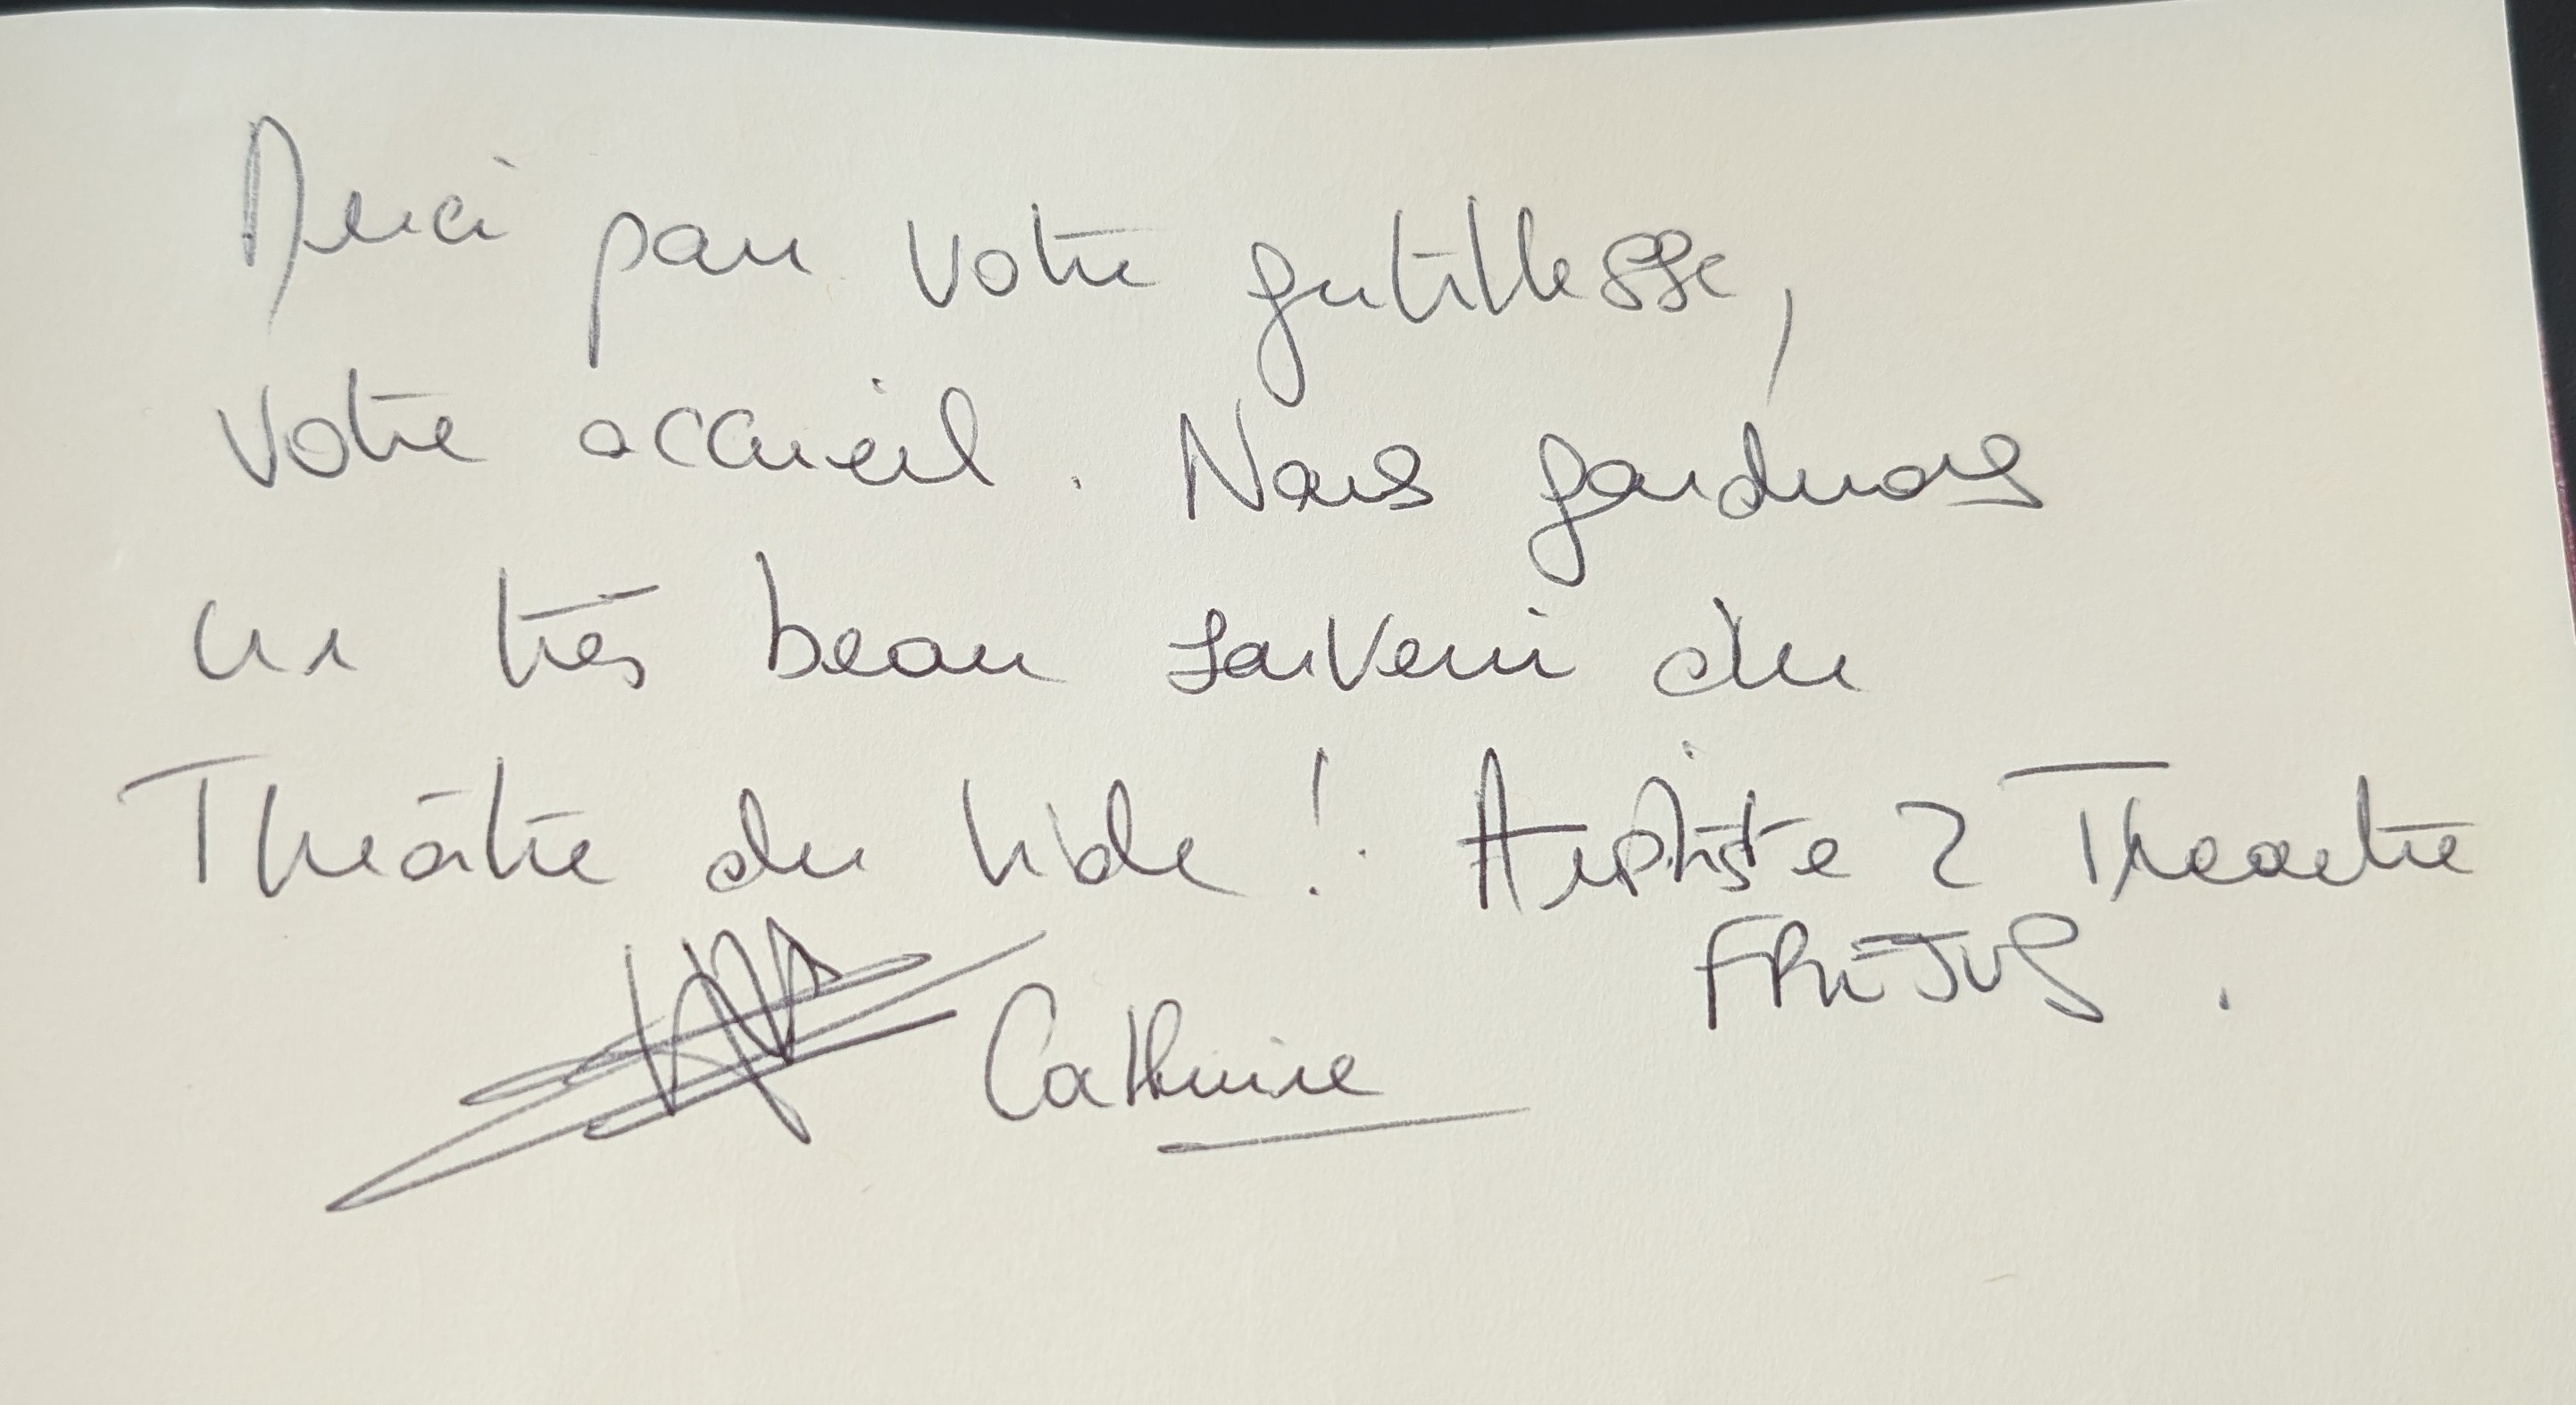 Merci pour votre gentillesse,
votre accueil. Nous garderons
un très beau souvenir du
Théâtre du Vide ! Artiste 2 Theatre
FREJUS.
Catherine